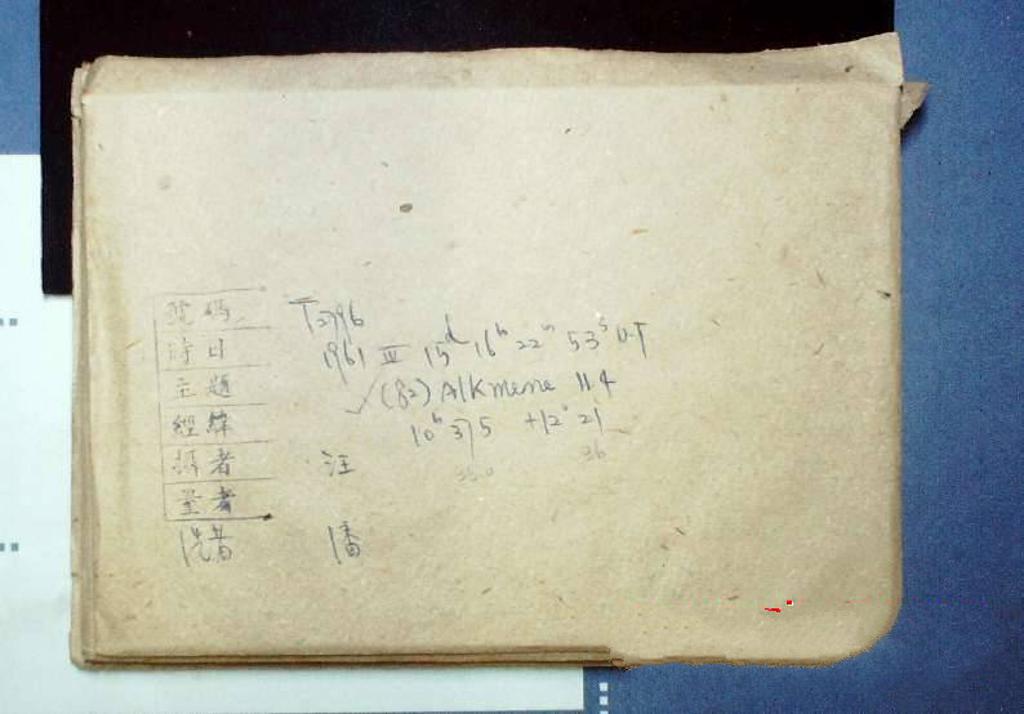 號碼 T2796
時日 1961 III 15d 16h 22m 53s U.T
主題 ✓(82) Alkmene 11.4
經緯 10h 37.5 +12° 21
36
攝者 汪
量者
洗者 潘